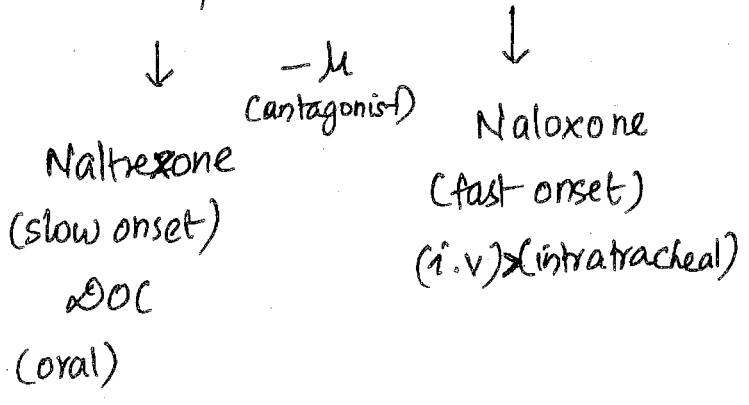 ↓ ↓
– μ
(antagonist)
Naltrexone
(slow onset)
DOC
(oral)
Naloxone
(fast onset)
(i.v)>(intratracheal)